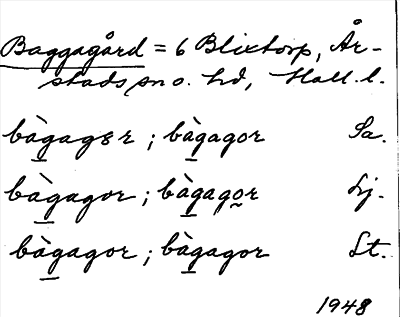 Baggagård = 6 Blixtorp, År-
stads sn o. hd, Hall. l.
bàgagɛr ; bàgagor Sa.
bàgagor ; bàgagor Lj.
bàgagor ; bàgagor St.
1948